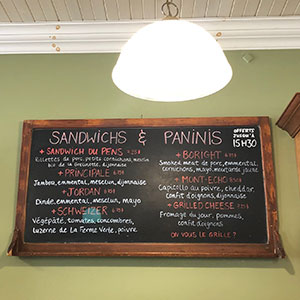 SANDWICHS & PANINIS
OFFERTS
JUSQU'À
15H30
+ SANDWICH DU PENS
Rillettes de porc, petits cornichons, meslin
bio de la Grelinette, dijonnaise
+ PRINCIPALE
Jambon, emmental, mesclun, dijonnaise
+ JORDAN
Dinde, emmental, mesclun, mayo
+ SCHWEIZER
Végépâté, tomates, concombres,
luzerne de La Ferme Verte, poivre
+ BORIGHT
Smoked meat de porc, emmental,
cornichons, mayo, moutarde jaune
+ MONT-ECHO
Capicollo au poivre, cheddar,
confit d'oignons, dijonnaise
+ GRILLED CHEESE
Fromage du jour, pommes,
confit d'oignons
ON VOUS LE GRILLE ?